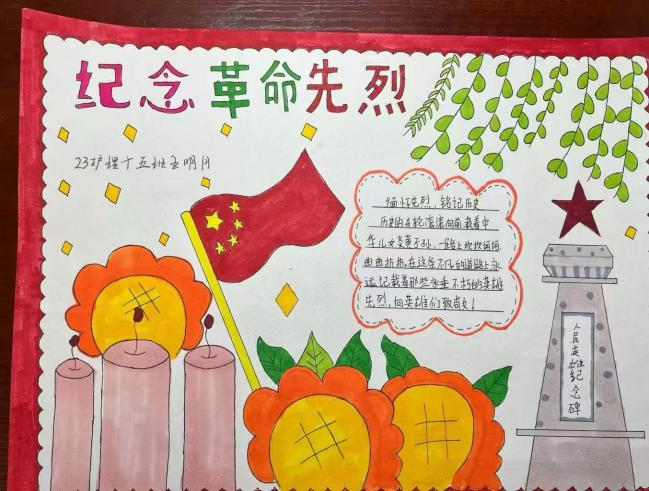 纪念革命先烈
23护理十五班王明月
缅怀先烈，铭记历史
历史的车轮滚滚向前载着中
华儿女炎黄子孙，一路上坎坎坷坷
曲曲折折，在这条不凡的道路上永
远记载着那些永垂不朽的英雄
先烈，向英雄们致敬！
人民英雄纪念碑